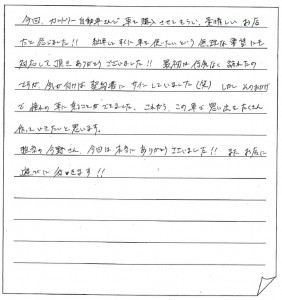 今回、カントリー自動車さんで車を購入させてもらい、素晴しいお店
だと感じました!! 結果としてすぐに車を使いたいという無理な希望にも
対応して頂きありがとうございました!! 最初は何気なく訪れたの
ですが、気が付けば契約書にサインしていました(笑) しかしそのおかげ
で最高の車に出会うことができました。これから、この車で思い出をたくさん
作っていきたいと思います。
担当の今野さん、今回は本当にありがとうございました!! またお店に
遊びに行きます!!